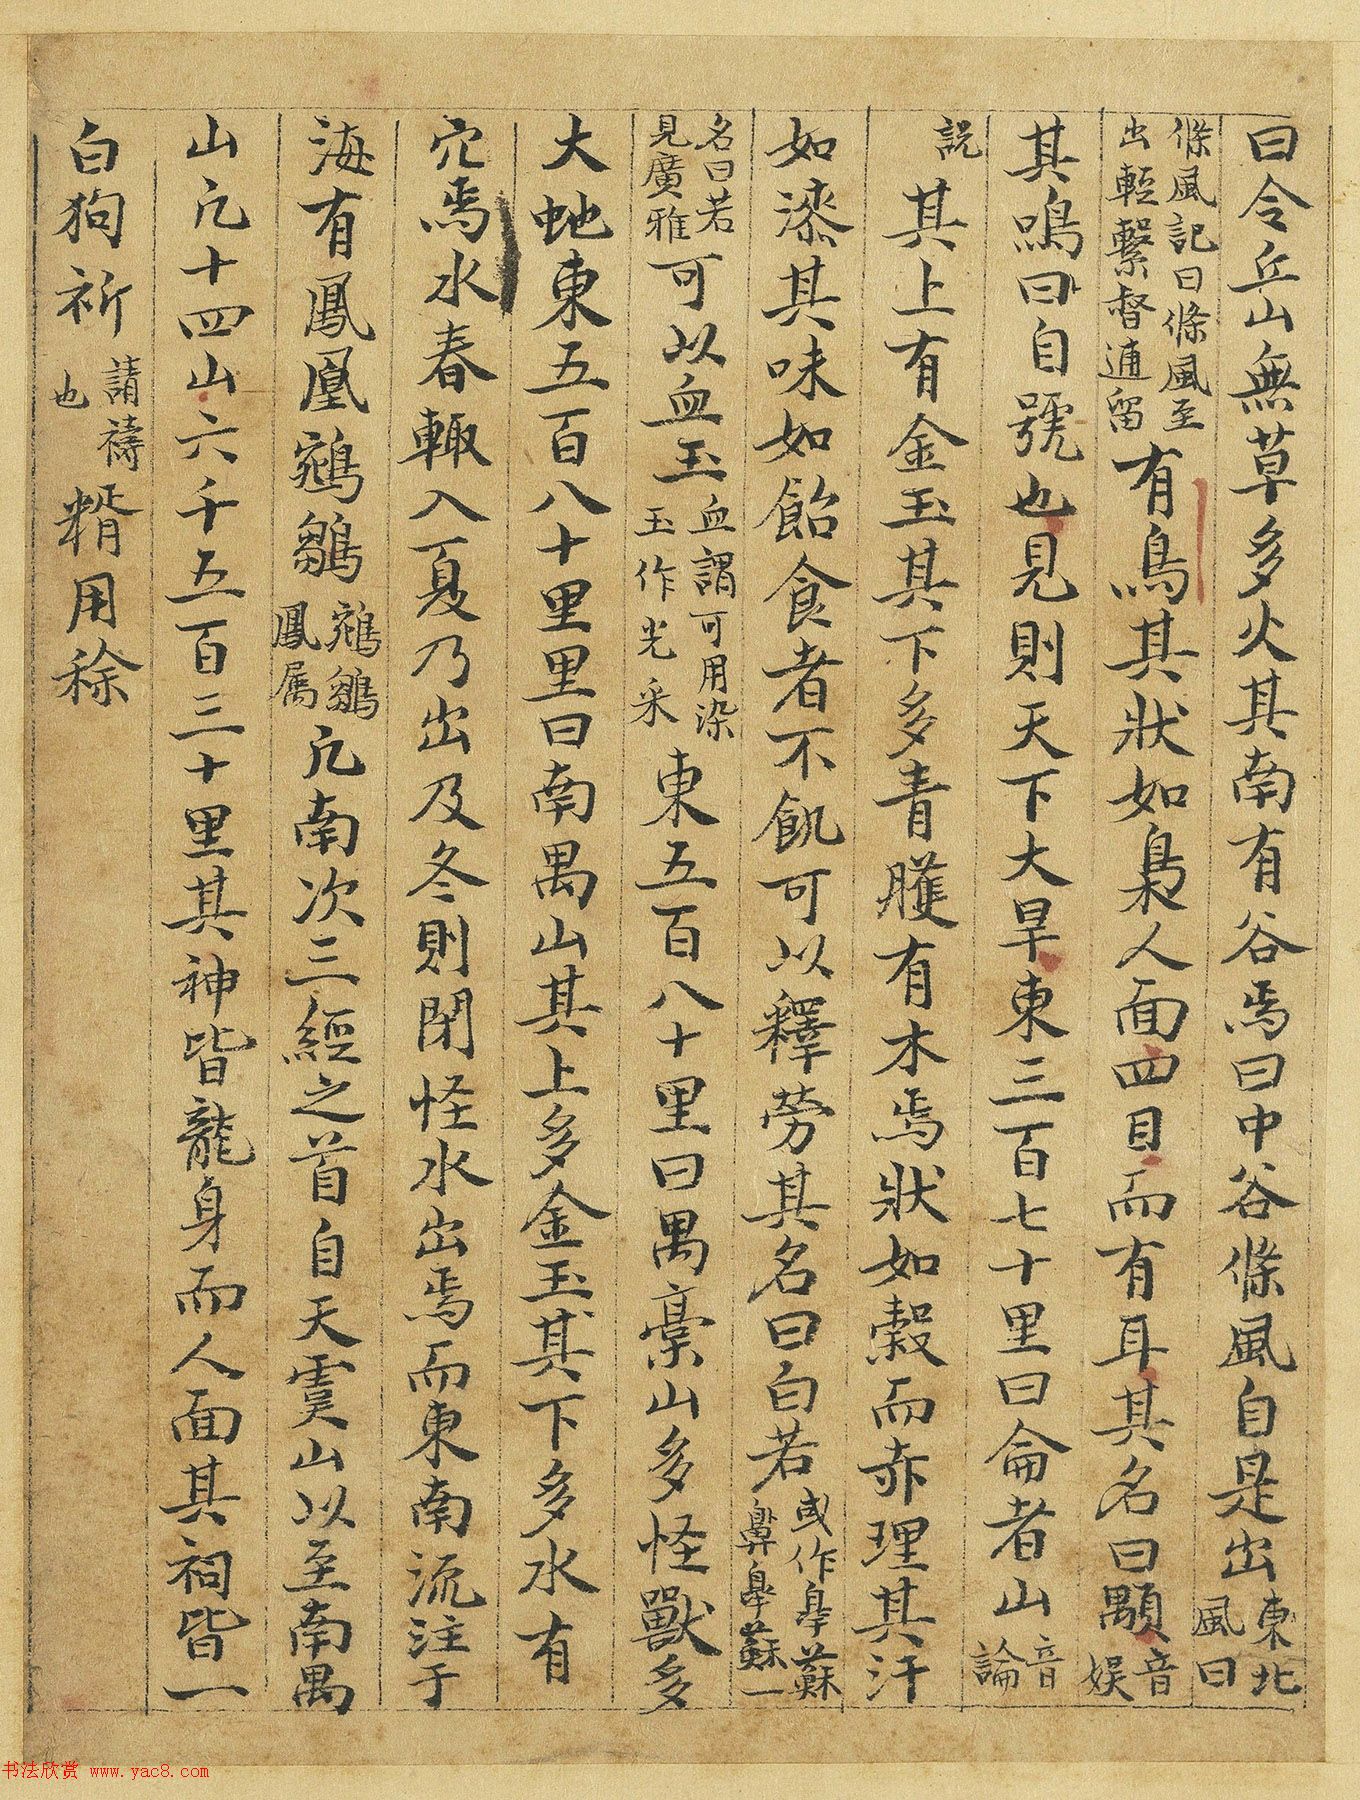 曰令丘山無草多火其南有谷焉曰中谷條風自是出東北風曰
條風記曰條風至出輕繫督逋留有鳥其狀如梟人面四目而有耳其名曰顒音娱
其鳴曰自號也見則天下大旱東三百七十里曰侖者山音論
説其上有金玉其下多青雘有木焉狀如榖而赤理其汗
如漆其味如飴食者不飢可以釋勞其名曰白若或作睾蘇睾蘇一
名曰若見廣雅可以血玉血謂可用染玉作光采東五百八十里曰禺槀山多怪獸多
大虵東五百八十里里曰南禺山其上多金玉其下多水有
穴焉水春輙入夏乃出及冬則閉怪水出焉而東南流注于
海有鳳凰鵷鶵鵷鶵鳳属凢南次三經之首自天虞山以至南禺
山凢十四山六千五百三十里其神皆龍身而人面其祠皆一
白狗祈請禱也糈用稌
书法欣赏 www.yac8.com